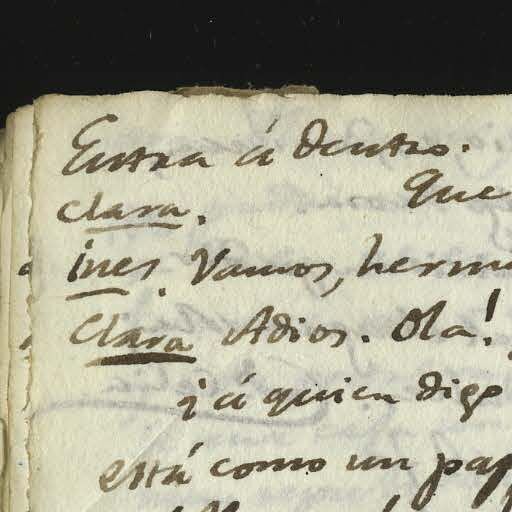 Entra á dentro.
Que
Clara.
ines. Vamos,
Clara Adios. Ola!
¿á quien digo
está como un